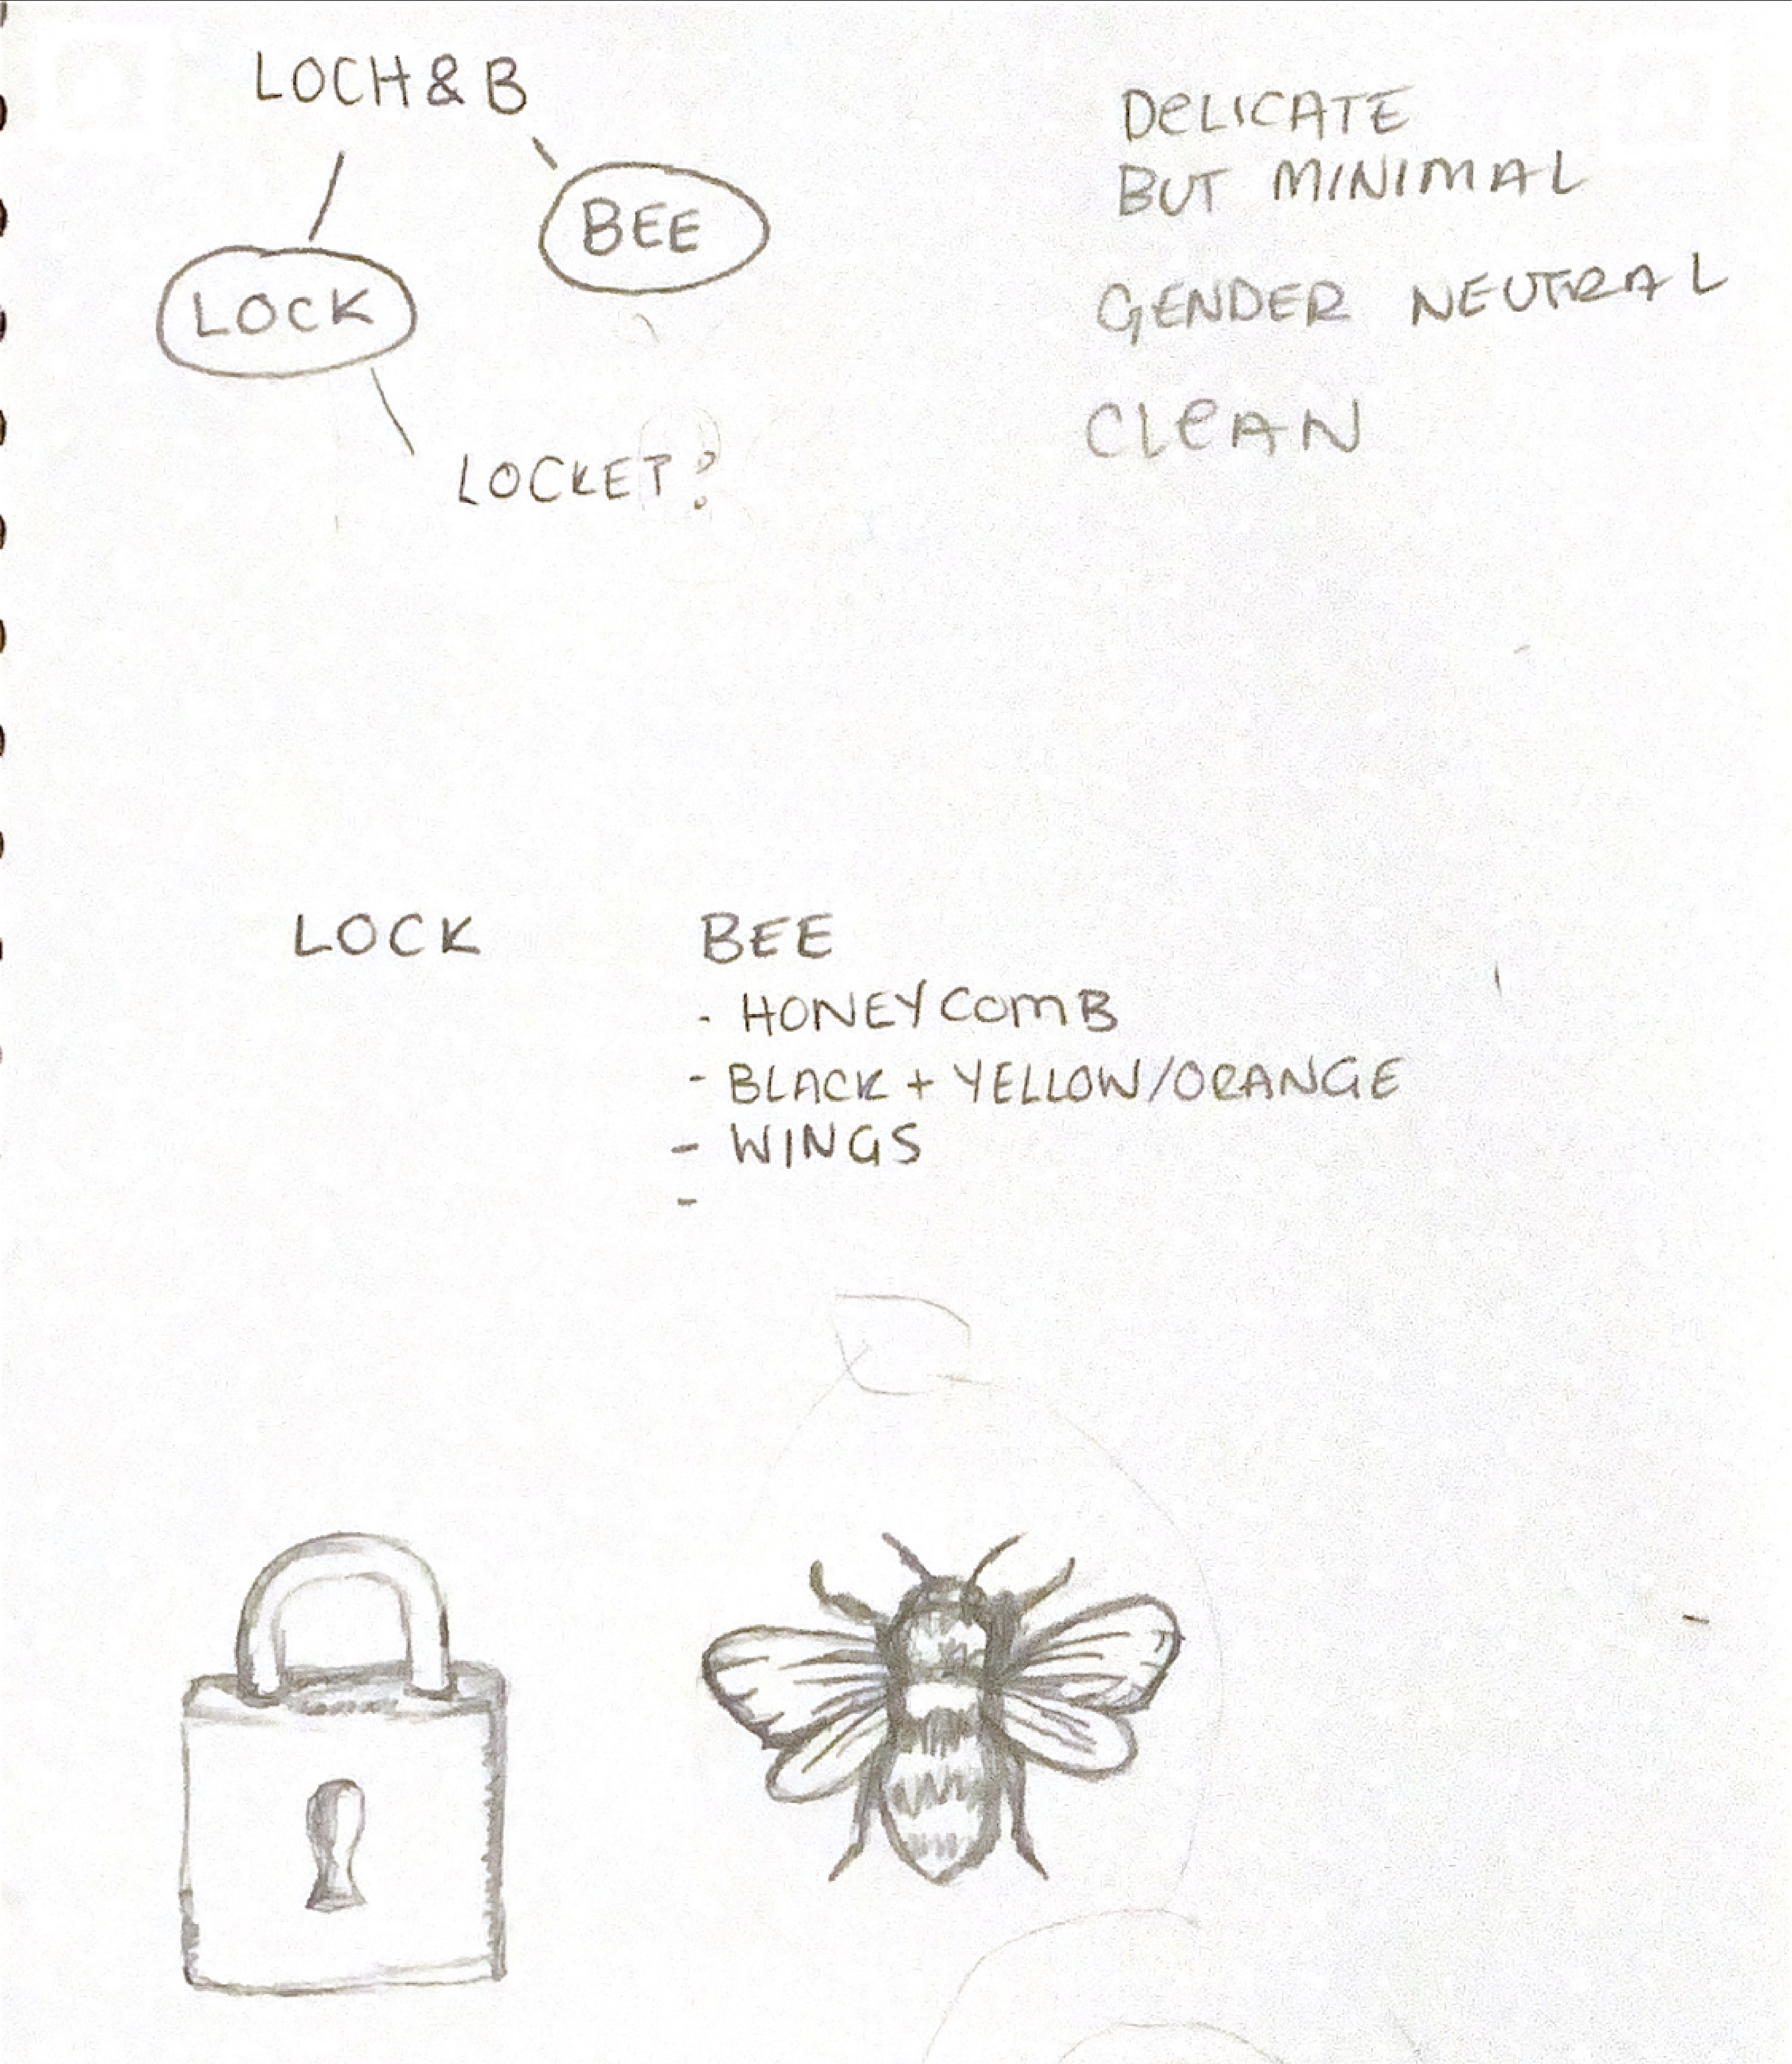 LOCH & B
BEE
LOCK
LOCKET?
DELICATE
BUT MINIMAL
GENDER NEUTRAL
CLEAN
LOCK
BEE
- HONEYCOMB
- BLACK + YELLOW/ORANGE
- WINGS
-